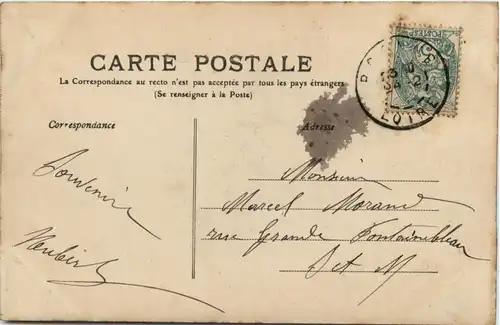 CARTE POSTALE
La Correspondance au recto n'est pas acceptée par tous les pays étrangers
(Se renseigner à la Poste)
Correspondance
Adresse
Souvenir
Monsieur
Marcel Morand
rue Grande Fontainebleau
S et M
POSTES
LOIR